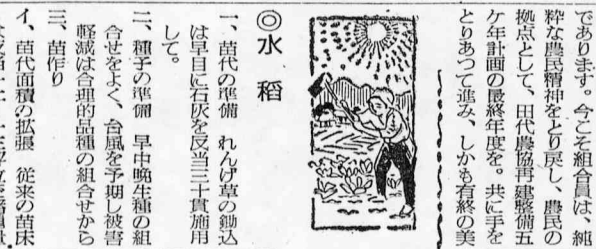 であります。今こそ組合員は、純
粋な農民精神をとり戻し、農民の
拠点として、田代農協再建整備五
ケ年計画の最終年度を。共に手を
とりあつて進み、しかも有終の美
◎水稲
一、苗代の準備　れんげ草の鋤込
は早目に石灰を反当三十貫施用
して。
二、種子の準備　早中晩生種の組
合せをよく、台風を予期し被害
軽減は合理的品種の組合せから
三、苗作り
イ、苗代面積の拡張　従来の苗床